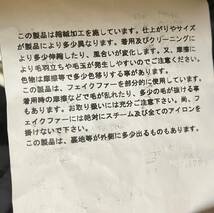 この製品は縮絨加工を施しています。仕上がりやサイズ
が製品により多少異なります。着用及びクリーニングに
より多少伸縮したり、風合いが変化します。又、摩擦に
より毛羽立ちや毛玉が発生しやすいのでご注意ください。
色物は摩擦等で多少色移りする事が有ります。
この商品は、フェイクファーを部分的に使用しています。
着用時の摩擦などで毛が乱れたり、多少の毛が抜ける事も
有ります。お取り扱いには充分ご注意下さい。尚、
フェイクファーには絶対にスチーム及び全てのアイロンを
掛けないで下さい。
この製品は、裏地等が外側に多少出るものもあります。